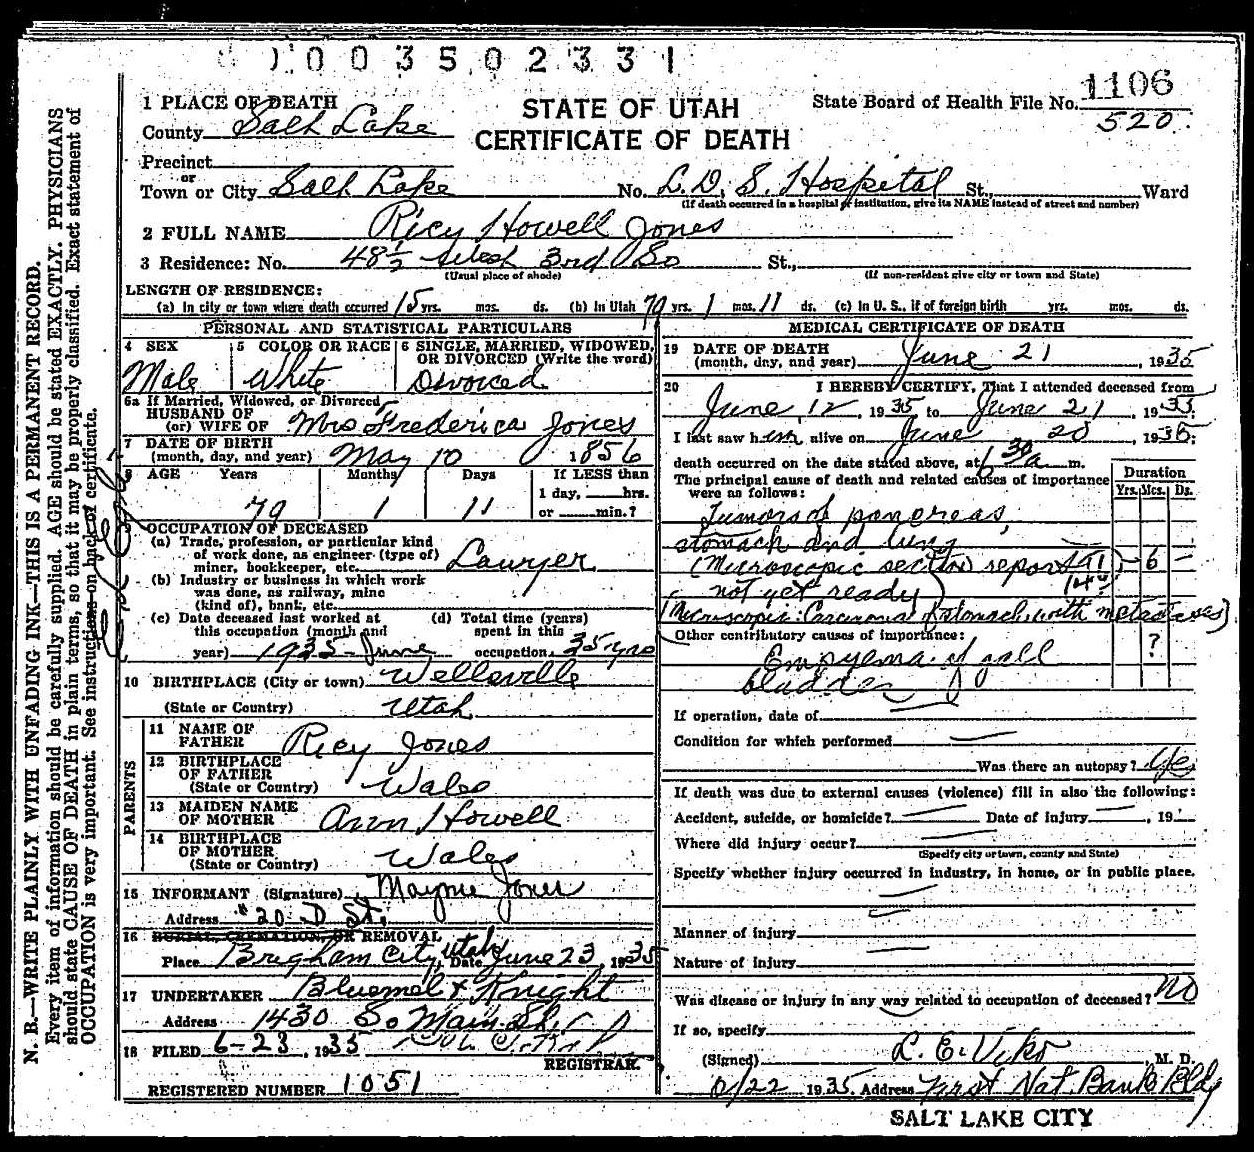 0003502331
1106
1 PLACE OF DEATH
STATE OF UTAH
State Board of Health File No.
520
County Salt Lake
CERTIFICATE OF DEATH
Precinct
or
Town or City Salt Lake No. L. D. S. Hospital St., Ward
(If death occurred in a hospital or institution, give its NAME instead of street and number)
2 FULL NAME Ricy Howell Jones
3 Residence: No. 48½ West 3rd So St.,
(Usual place of abode) (If non-resident give city or town and State)
LENGTH OF RESIDENCE:
(a) In city or town where death occurred 15 yrs. mos. ds. (b) In Utah 79 yrs. 1 mos. 11 ds. (c) In U. S., if of foreign birth yrs. mos. ds.
PERSONAL AND STATISTICAL PARTICULARS
4 SEX 5 COLOR OR RACE 6 SINGLE, MARRIED, WIDOWED,
OR DIVORCED (Write the word)
Male White Divorced
6a If Married, Widowed, or Divorced
HUSBAND OF
(or) WIFE OF Mrs Frederica Jones
7 DATE OF BIRTH
(month, day, and year) May 10 1856
8 AGE Years Months Days If LESS than
1 day, hrs.
79 1 11 or min.?
9 OCCUPATION OF DECEASED
(a) Trade, profession, or particular kind
of work done, as engineer (type of)
miner, bookkeeper, etc. Lawyer
(b) Industry or business in which work
was done, as railway, mine
(kind of), bank, etc.
(c) Date deceased last worked at (d) Total time (years)
this occupation (month and spent in this
year) 1935-June occupation 35 yrs
10 BIRTHPLACE (City or town) Wellsville
(State or Country) Utah
PARENTS
11 NAME OF
FATHER Ricy Jones
12 BIRTHPLACE
OF FATHER
(State or Country) Wales
13 MAIDEN NAME
OF MOTHER Ann Howell
14 BIRTHPLACE
OF MOTHER
(State or Country) Wales
15 INFORMANT (Signature) Mayme Jones
Address #20 D St.
16 BURIAL, CREMATION, OR REMOVAL
Place Brigham City, Utah Date June 23, 1935
17 UNDERTAKER Bluemel & Knight
Address 1430 So Main St.
18 FILED 6-23, 1935
REGISTRAR.
REGISTERED NUMBER 1051
MEDICAL CERTIFICATE OF DEATH
19 DATE OF DEATH
(month, day, and year) June 21, 1935
20 I HEREBY CERTIFY, That I attended deceased from
June 12, 1935 to June 21, 1935;
I last saw him alive on June 20, 1935;
death occurred on the date stated above, at 6 30 a m.
The principal cause of death and related causes of importance
were as follows:
Duration
Yrs. Mcs. Ds.
Tumors of pancreas,
stomach and lung
(Microscopic section report
not yet ready) 6 —
(Microscopic: Carcinoma of stomach with metastases)
Other contributory causes of importance:
Empyema of gall ?
bladder
If operation, date of
Condition for which performed
Was there an autopsy? Yes
If death was due to external causes (violence) fill in also the following:
Accident, suicide, or homicide? Date of injury, 19
Where did injury occur?
(Specify city or town, county and State)
Specify whether injury occurred in industry, in home, or in public place.
Manner of injury
Nature of injury
Was disease or injury in any way related to occupation of deceased? No
If so, specify
(Signed) L. E. Viko, M. D.
6/22 1935 Address First Nat. Bank Bldg
SALT LAKE CITY
N. B.—WRITE PLAINLY WITH UNFADING INK—THIS IS A PERMANENT RECORD.
Every item of information should be carefully supplied. AGE should be stated EXACTLY. PHYSICIANS
should state CAUSE OF DEATH in plain terms, so that it may be properly classified. Exact statement of
OCCUPATION is very important. See instructions on back of certificate.